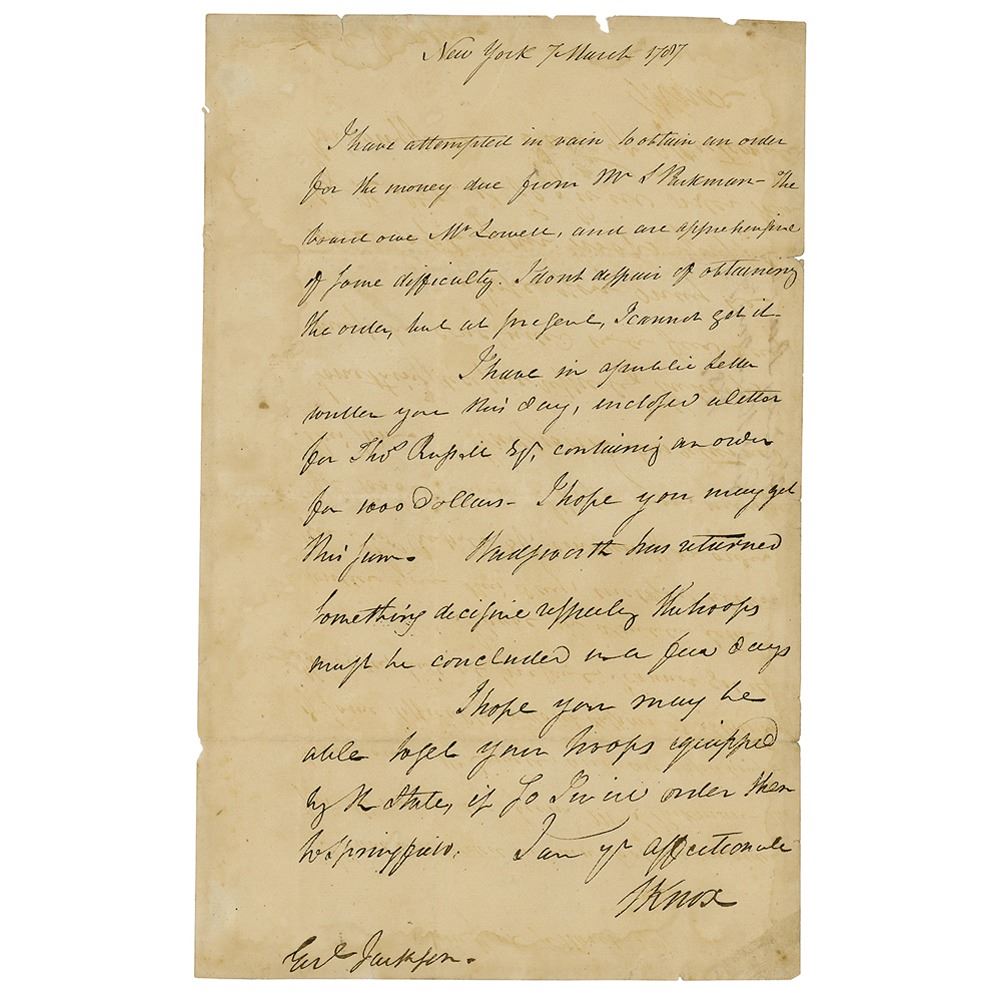 New York 7 March 1787
I have attempted in vain to obtain an order
for the money due from Mr S Parkman - The
board owe Mr Lowell, and are apprehensive
of some difficulty. I dont despair of obtaining
the order, but at present, I cannot get it -
I have in a public letter
written you this day, inclosed a letter
for Thos Russell Esqr, containing an order
for 1000 Dollars - I hope you may get
this sum. Wadsworth has returned
something decisive respecting the troops
must be concluded in a few days
I hope you may be
able to get your troops equipped
by the State, if so I will order them
to Springfield. I am yr affectionate
HKnox
Genl Jackson.